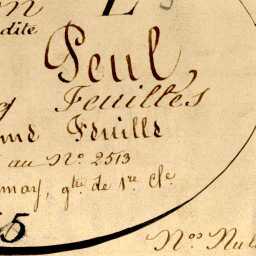 L
dite
Peul,
Feuilles
Feuille
au Nº 2513
may, gtre de 1re Cle
5
Nos Nul